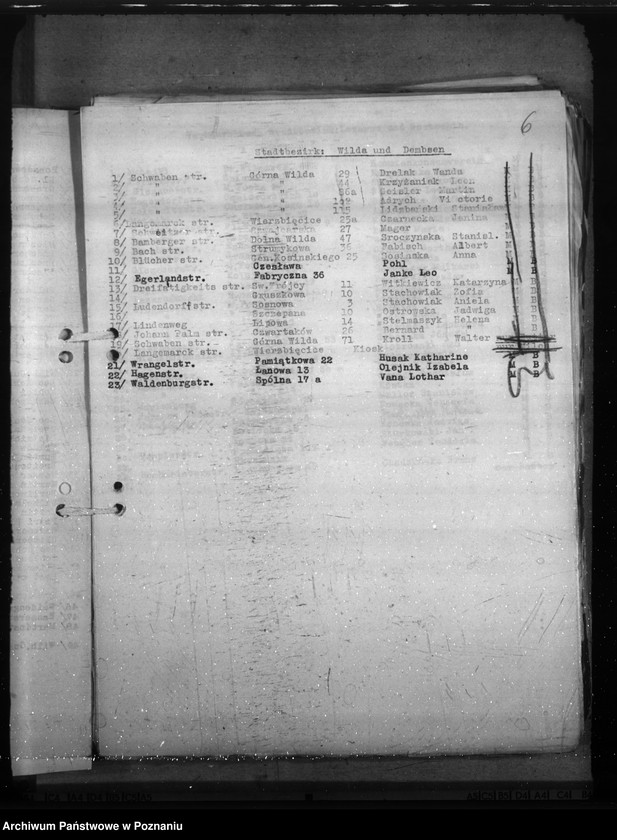 6
Stadtbezirk: Wilda und Dembsen
1/ Schwaben str. Górna Wilda 29 Drelak Wanda
2/ " " 44 Krzyżaniak Leon
3/ " " 86a Geisler Martin
4/ " " Victorie
5/ "
6/ Langemarck str. Wierzbięcice 25a Czarnecka Janina
7/ 27 Mager
8/ Bamberger str. Dolna Wilda 47 Sroczynska Stanisl.
9/ Bach str. Strumykowa 36 Babisch Albert
10/ Blücher str. Gen. Kosinskiego 25 Dosinska Anna
11/ Czesława Pohl
12/ Egerlandstr. Fabryczna 36 Janke Leo
13/ Dreifaltigkeits str. Św. Trójcy 11 Witkiewicz Katarzyna
14/ Gruszkowa 10 Stachowiak Zofia
15/ Ludendorff str. Sosnowa 3 Stachowiak Aniela
Szczepana 10 Ostrowska Jadwiga
17/ Lindenweg Lipowa 14 Stelmaszyk Helena
Johann Palm str. Czwartaków 26 Bernard "
19/ Schwaben str. Górna Wilda 71 Kroll Walter
Langemarck str. Wierzbięcice Kiosk
21/ Wrangelstr. Pamiątkowa 22 Husak Katharine
22/ Hagenstr. Łanowa 13 Olejnik Izabela
23/ Waldenburgstr. Spólna 17 a Vana Lothar
Archiwum Państwowe w Poznaniu